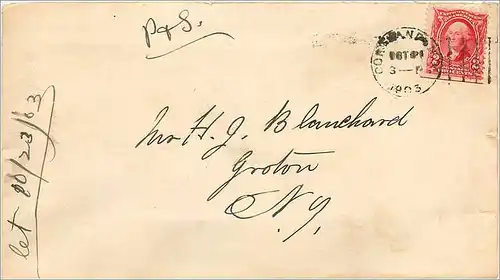 P & S.
CORTLAND
OCT 21
3 —
1903
Mr H. J. Blanchard
Groton
N. Y.
let 10/23/03